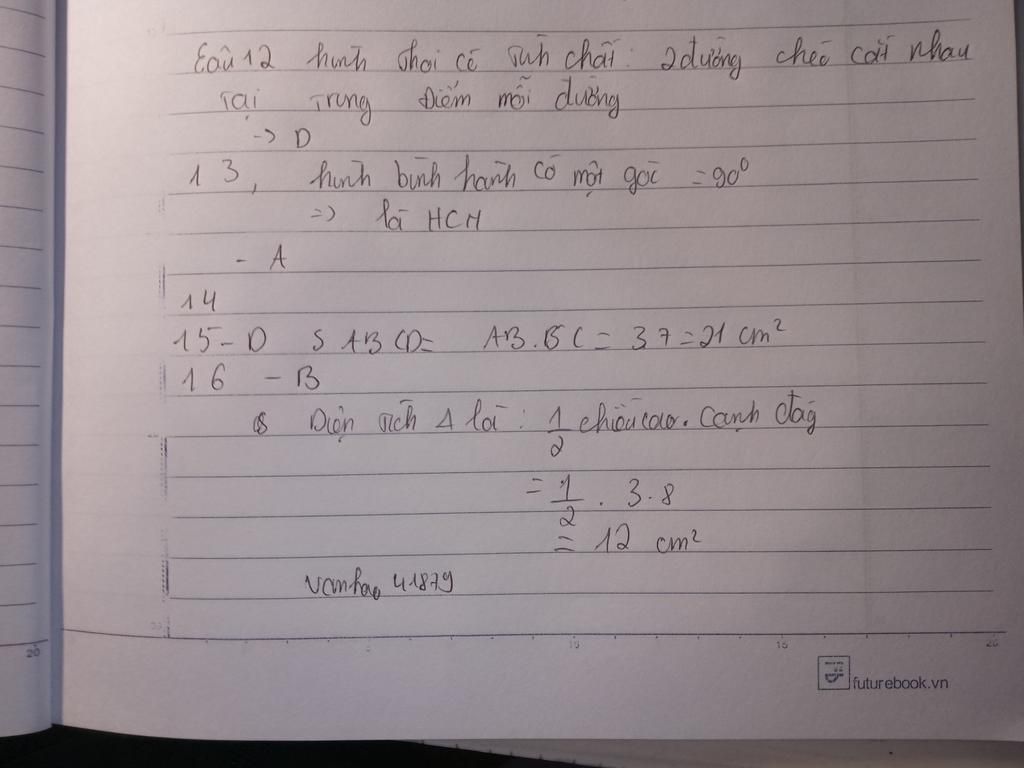 Câu 12 hình thoi có tính chất: 2 đường chéo cắt nhau
tại trung điểm mỗi đường
-> D
13, hình bình hành có một góc = 90⁰
=> là HCN
- A
14
15 - D S ABCD = AB.BC = 3 7 = 21 cm²
16 - B
Diện tích Δ là: 1/2 chiều cao. cạnh đáy
= 1/2 . 3.8
= 12 cm²
vanhao 41879
5 10 15 20
20
futurebook.vn